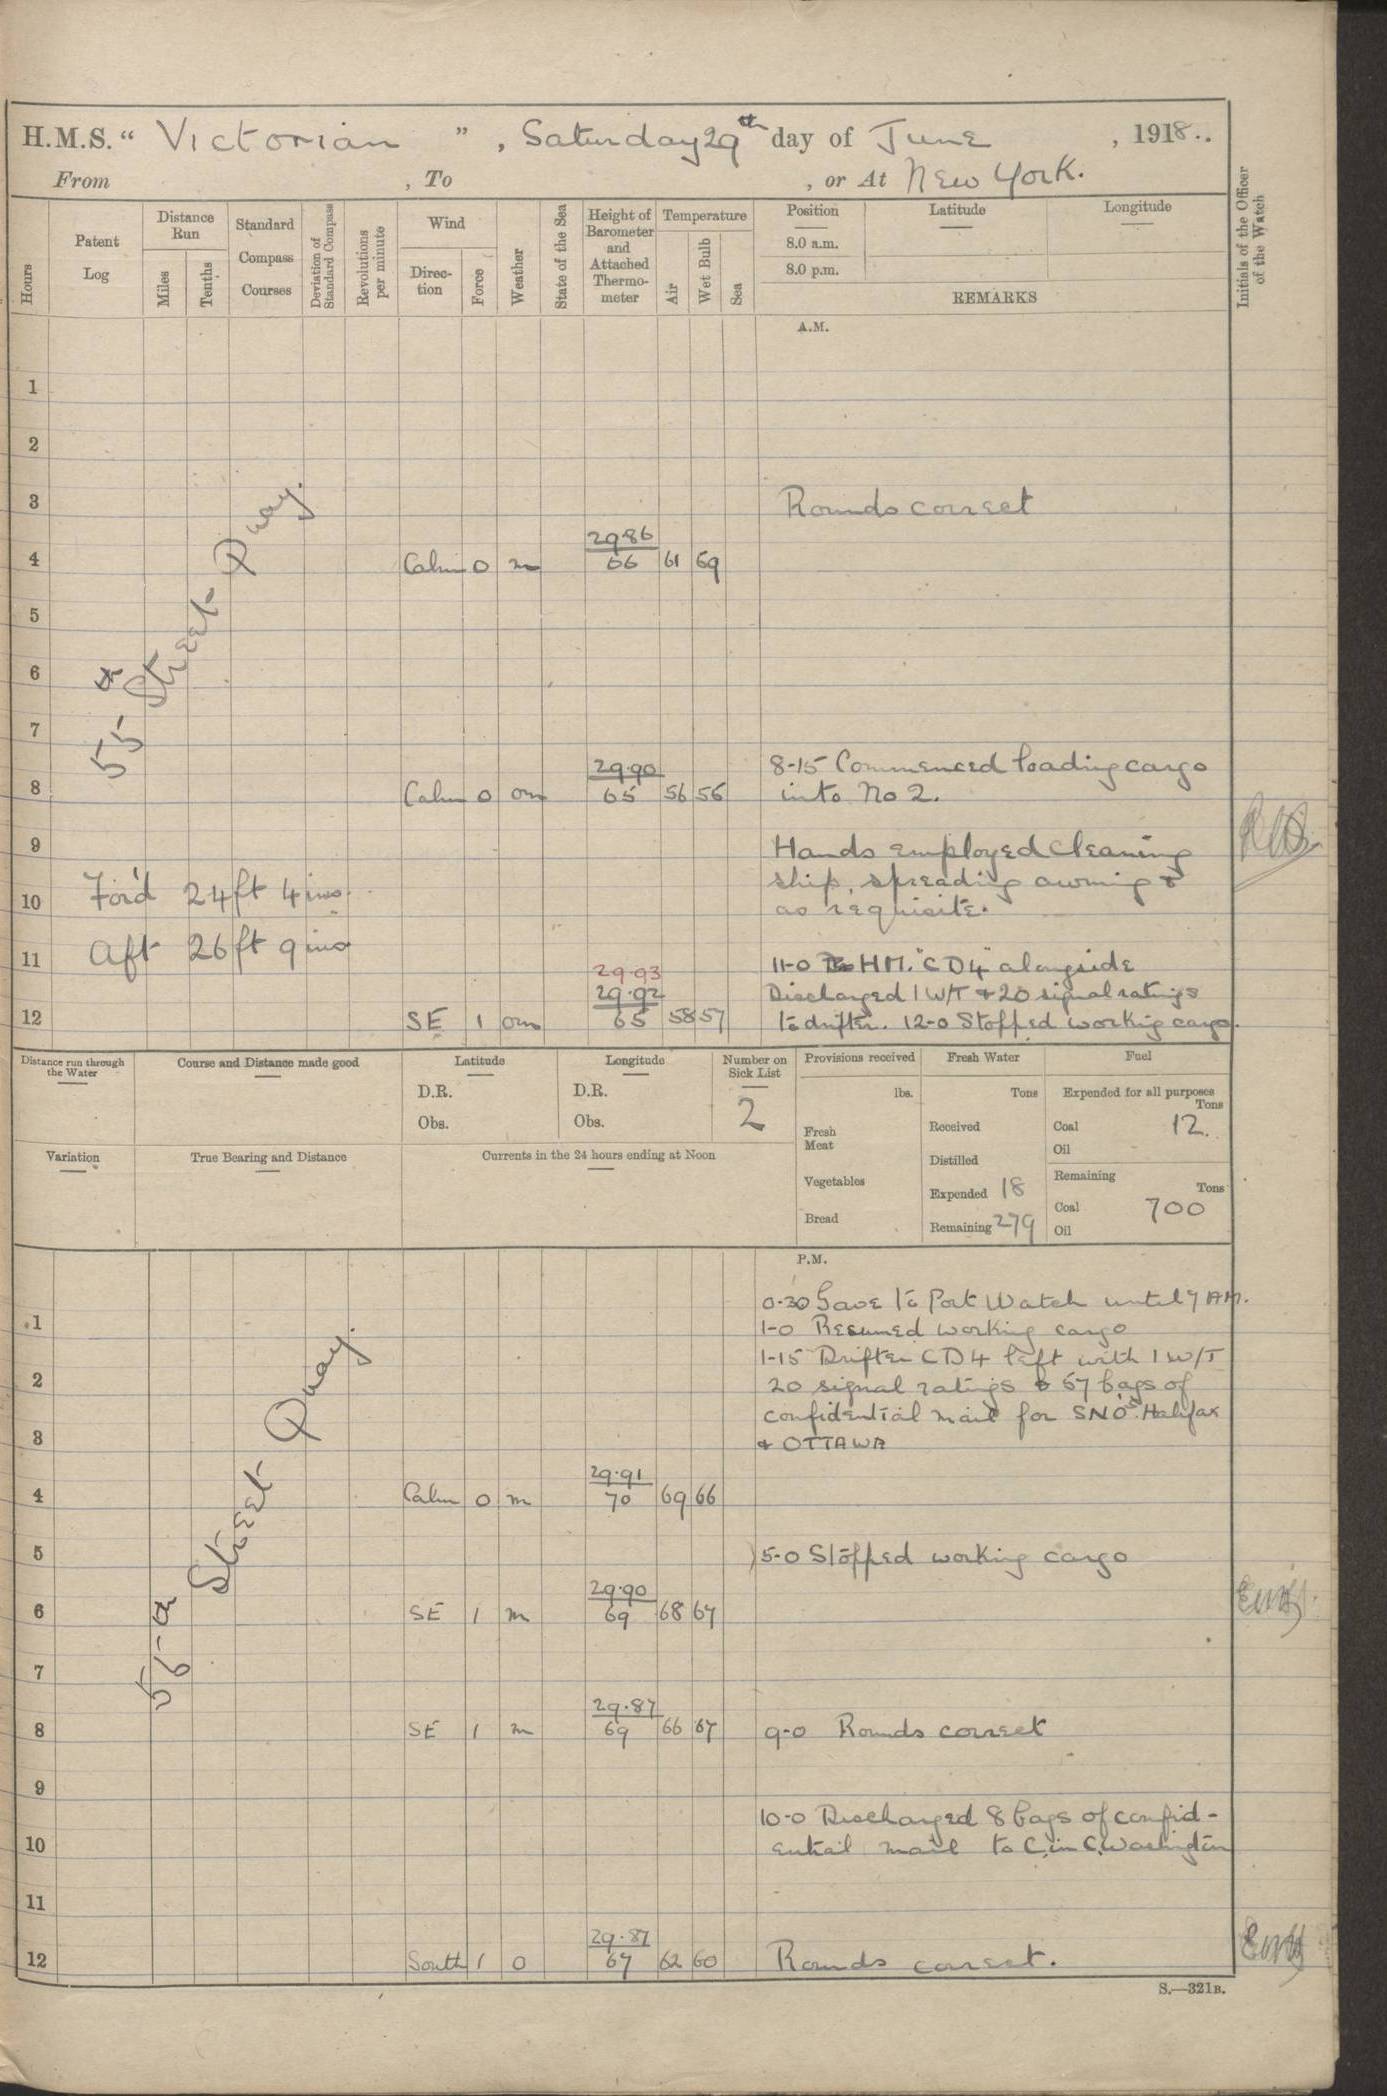 H.M.S. “ Victorian ” , Saturday 29th day of June , 1918..
From , To , or At New York.
Hours
Patent Log
Distance Run
Miles
Tenths
Standard Compass Courses
Deviation of Standard Compass
Revolutions per minute
Wind
Direc-tion
Force
Weather
State of the Sea
Height of Barometer and Attached Thermo-meter
Temperature
Air
Wet Bulb
Sea
Position
Latitude
Longitude
8.0 a.m.
8.0 p.m.
REMARKS
Initials of the Officer of the Watch
A.M.
1
2
3 Rounds correct
29.86
4 Calm 0 m 66 61 69
5
6
7
55th Street Quay.
29.90 8-15 Commenced loading cargo
8 Calm 0 om 65 56 56 into No 2.
9 Hands employed cleaning
10 For'd 24ft 4ins. ship, spreading awning &
as requisite.
11 Aft 26ft 9ins 11-0 HM. "CD4" alongside
29.93
29.92 Discharged 1 W/T & 20 signal ratings
12 SE 1 om 65 58 57 to drifter. 12-0 Stopped working cargo.
Distance run through the Water
Course and Distance made good
Latitude
D.R.
Obs.
Longitude
D.R.
Obs.
Number on Sick List
2
Variation
True Bearing and Distance
Currents in the 24 hours ending at Noon
Provisions received
lbs.
Fresh Meat
Vegetables
Bread
Fresh Water
Tons
Received
Distilled
Expended 18
Remaining 279
Fuel
Expended for all purposes
Tons
Coal 12.
Oil
Remaining
Tons
Coal 700
Oil
P.M.
0-30 Gave to Port Watch until 7 AM.
1 1-0 Resumed working cargo
1-15 Drifter CD4 left with 1 W/T
2 20 signal ratings & 67 bags of
confidential mail for SNOs. Halifax
3 & OTTAWA
29.91
4 Calm 0 m 70 69 66
5 5-0 Stopped working cargo
29.90
6 SE 1 m 69 68 67
7
Street Quay.
29.87
8 SE 1 m 69 66 67 9-0 Rounds correct
9
10-0 Discharged 8 bags of confid-
10 ential mail to C.in C. Washington
11
29.87
12 South 1 0 67 62 60 Rounds correct.
S.—321B.